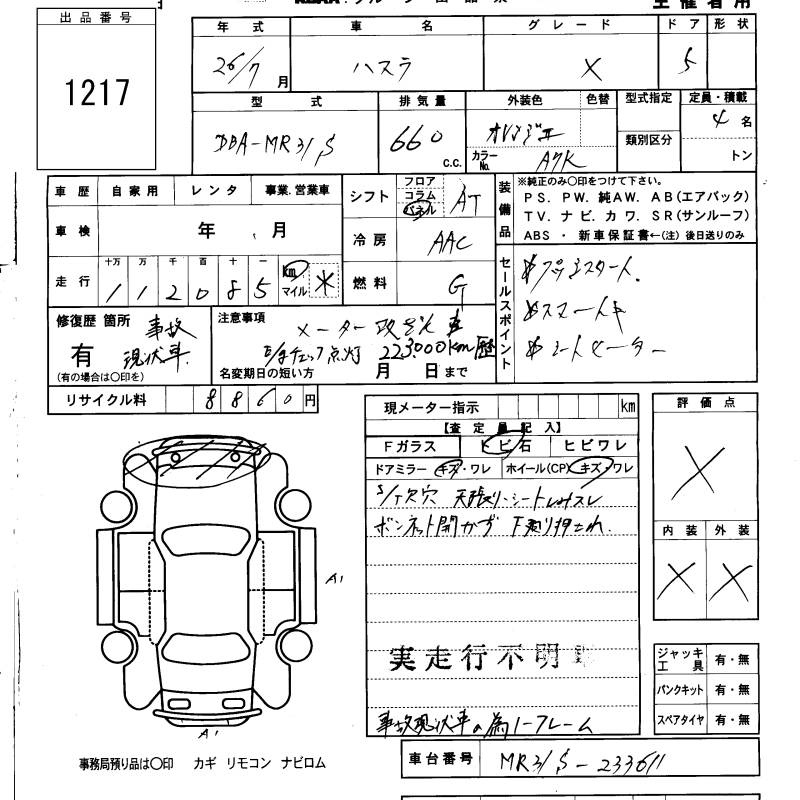 出品番号
1217
年式 車名 グレード ドア 形状
26/7月 ハスラ X 5
型式 排気量 外装色 色替 型式指定 定員・積載
DBA-MR31S 660 c.c. オレンジII 類別区分 4名
カラーNo. A7K トン
車歴 自家用 レンタ 事業.営業車
車検 年 月
走行 十万 万 千 百 十 一
112085 km マイル *
シフト フロア コラム パネル AT
冷房 AAC
燃料 G
装備品
※純正のみ○印をつけて下さい。
PS. PW. 純AW. AB(エアバック)
TV. ナビ. カワ. SR(サンルーフ)
ABS ・ 新車保証書←(注) 後日送りのみ
セールスポイント
プッシュスタート.
スマートキ
シートヒーター
修復歴 箇所 事故
有 現状車.
(有の場合は○印を)
注意事項 メーター改ざん車
チェック点灯 223000km歴
名変期日の短い方 月 日まで
リサイクル料 8860円
現メーター指示 km
【査定員記入】
Fガラス トビ石 ヒビワレ
ドアミラー キズ・ワレ ホイール(CP) キズ・ワレ
S/T欠穴 天張り・シート
ボンネット開かず F廻り押され.
実走行不明
事故現状車の為ノークレーム
評価点
X
内装 外装
X X
ジャッキ工具 有・無
パンクキット 有・無
スペアタイヤ 有・無
A1
A1
事務局預り品は○印 カギ リモコン ナビロム
車台番号 MR31S-233611